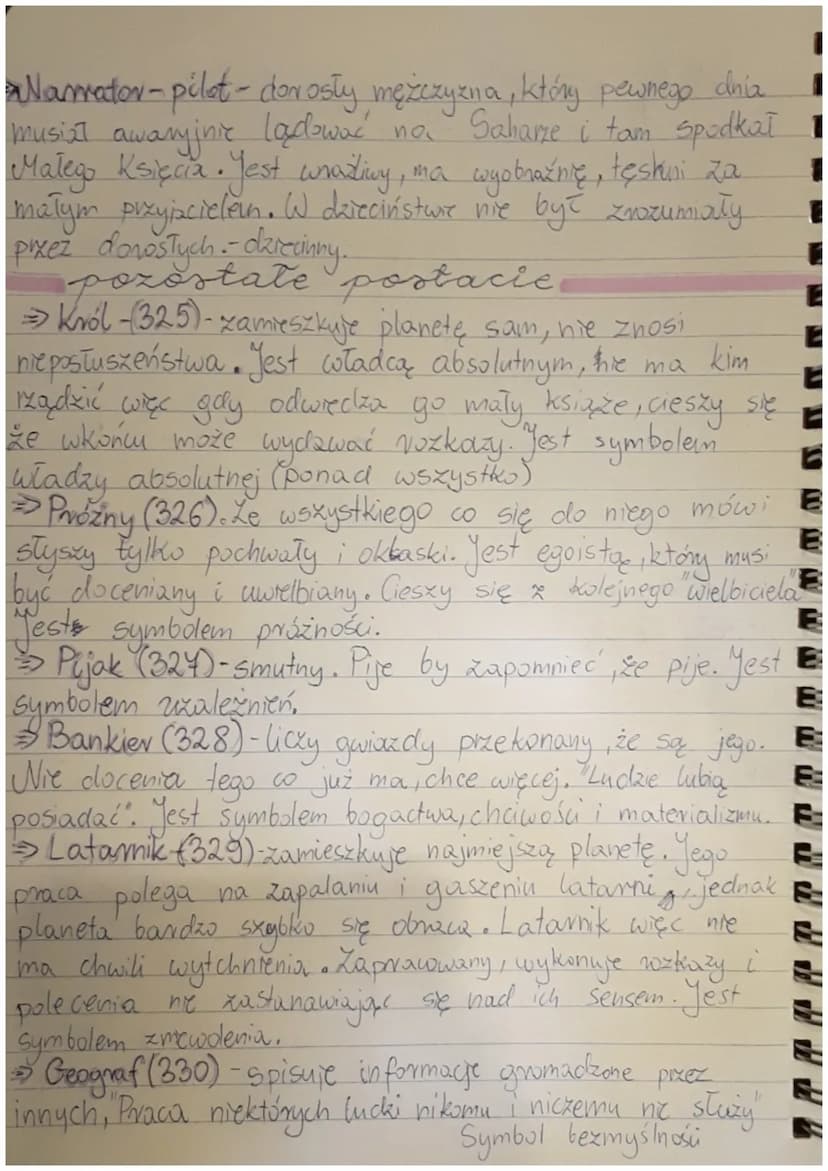 ⇒Narrator-pilot- dorosły mężczyzna, który pewnego dnia
musiał awaryjnie lądować na Saharze i tam spodkał
Małego Księcia. Jest wrażliwy, ma wyobraźnię, tęskni za
małym przyjacielem. W dzieciństwie nie był zrozumiały
przez dorosłych.-dziecinny.
pozostałe postacie
⇒ Król -(325)- zamieszkuje planetę sam, nie znosi
nieposłuszeństwa. Jest władcą absolutnym, nie ma kim
rządzić więc gdy odwiedza go mały książe, cieszy się
że wkońcu może wydawać rozkazy. Jest symbolem
władzy absolutnej (ponad wszystko)
⇒ Próżny (326). Ze wszystkiego co się do niego mówi
słyszy tylko pochwały i oklaski. Jest egoistą, który musi
być doceniany i uwielbiany. Cieszy się z kolejnego "wielbiciela"
Jest symbolem próżności.
⇒ Pijak (327)-smutny. Pije by zapomnieć, że pije. Jest
symbolem uzależnień.
⇒ Bankier (328)-liczy gwiazdy przekonany, że są jego.
Nie docenia tego co już ma, chce więcej. "Ludzie lubią
posiadać". Jest symbolem bogactwa, chciwości i materializmu.
⇒ Latarnik (329)-zamieszkuje najmiejszą planetę. Jego
praca polega na zapalaniu i gaszeniu latarni, jednak
planeta bardzo szybko się obraca. Latarnik więc nie
ma chwili wytchnienia. Zapracowany, wykonuje rozkazy i
polecenia nie zastanawiając się nad ich sensem. Jest
symbolem zniewolenia.
⇒ Geograf (330) -spisuje informacje gromadzone przez
innych, "Praca niektórych ludzi nikomu i niczemu nie służy"
Symbol bezmyślności